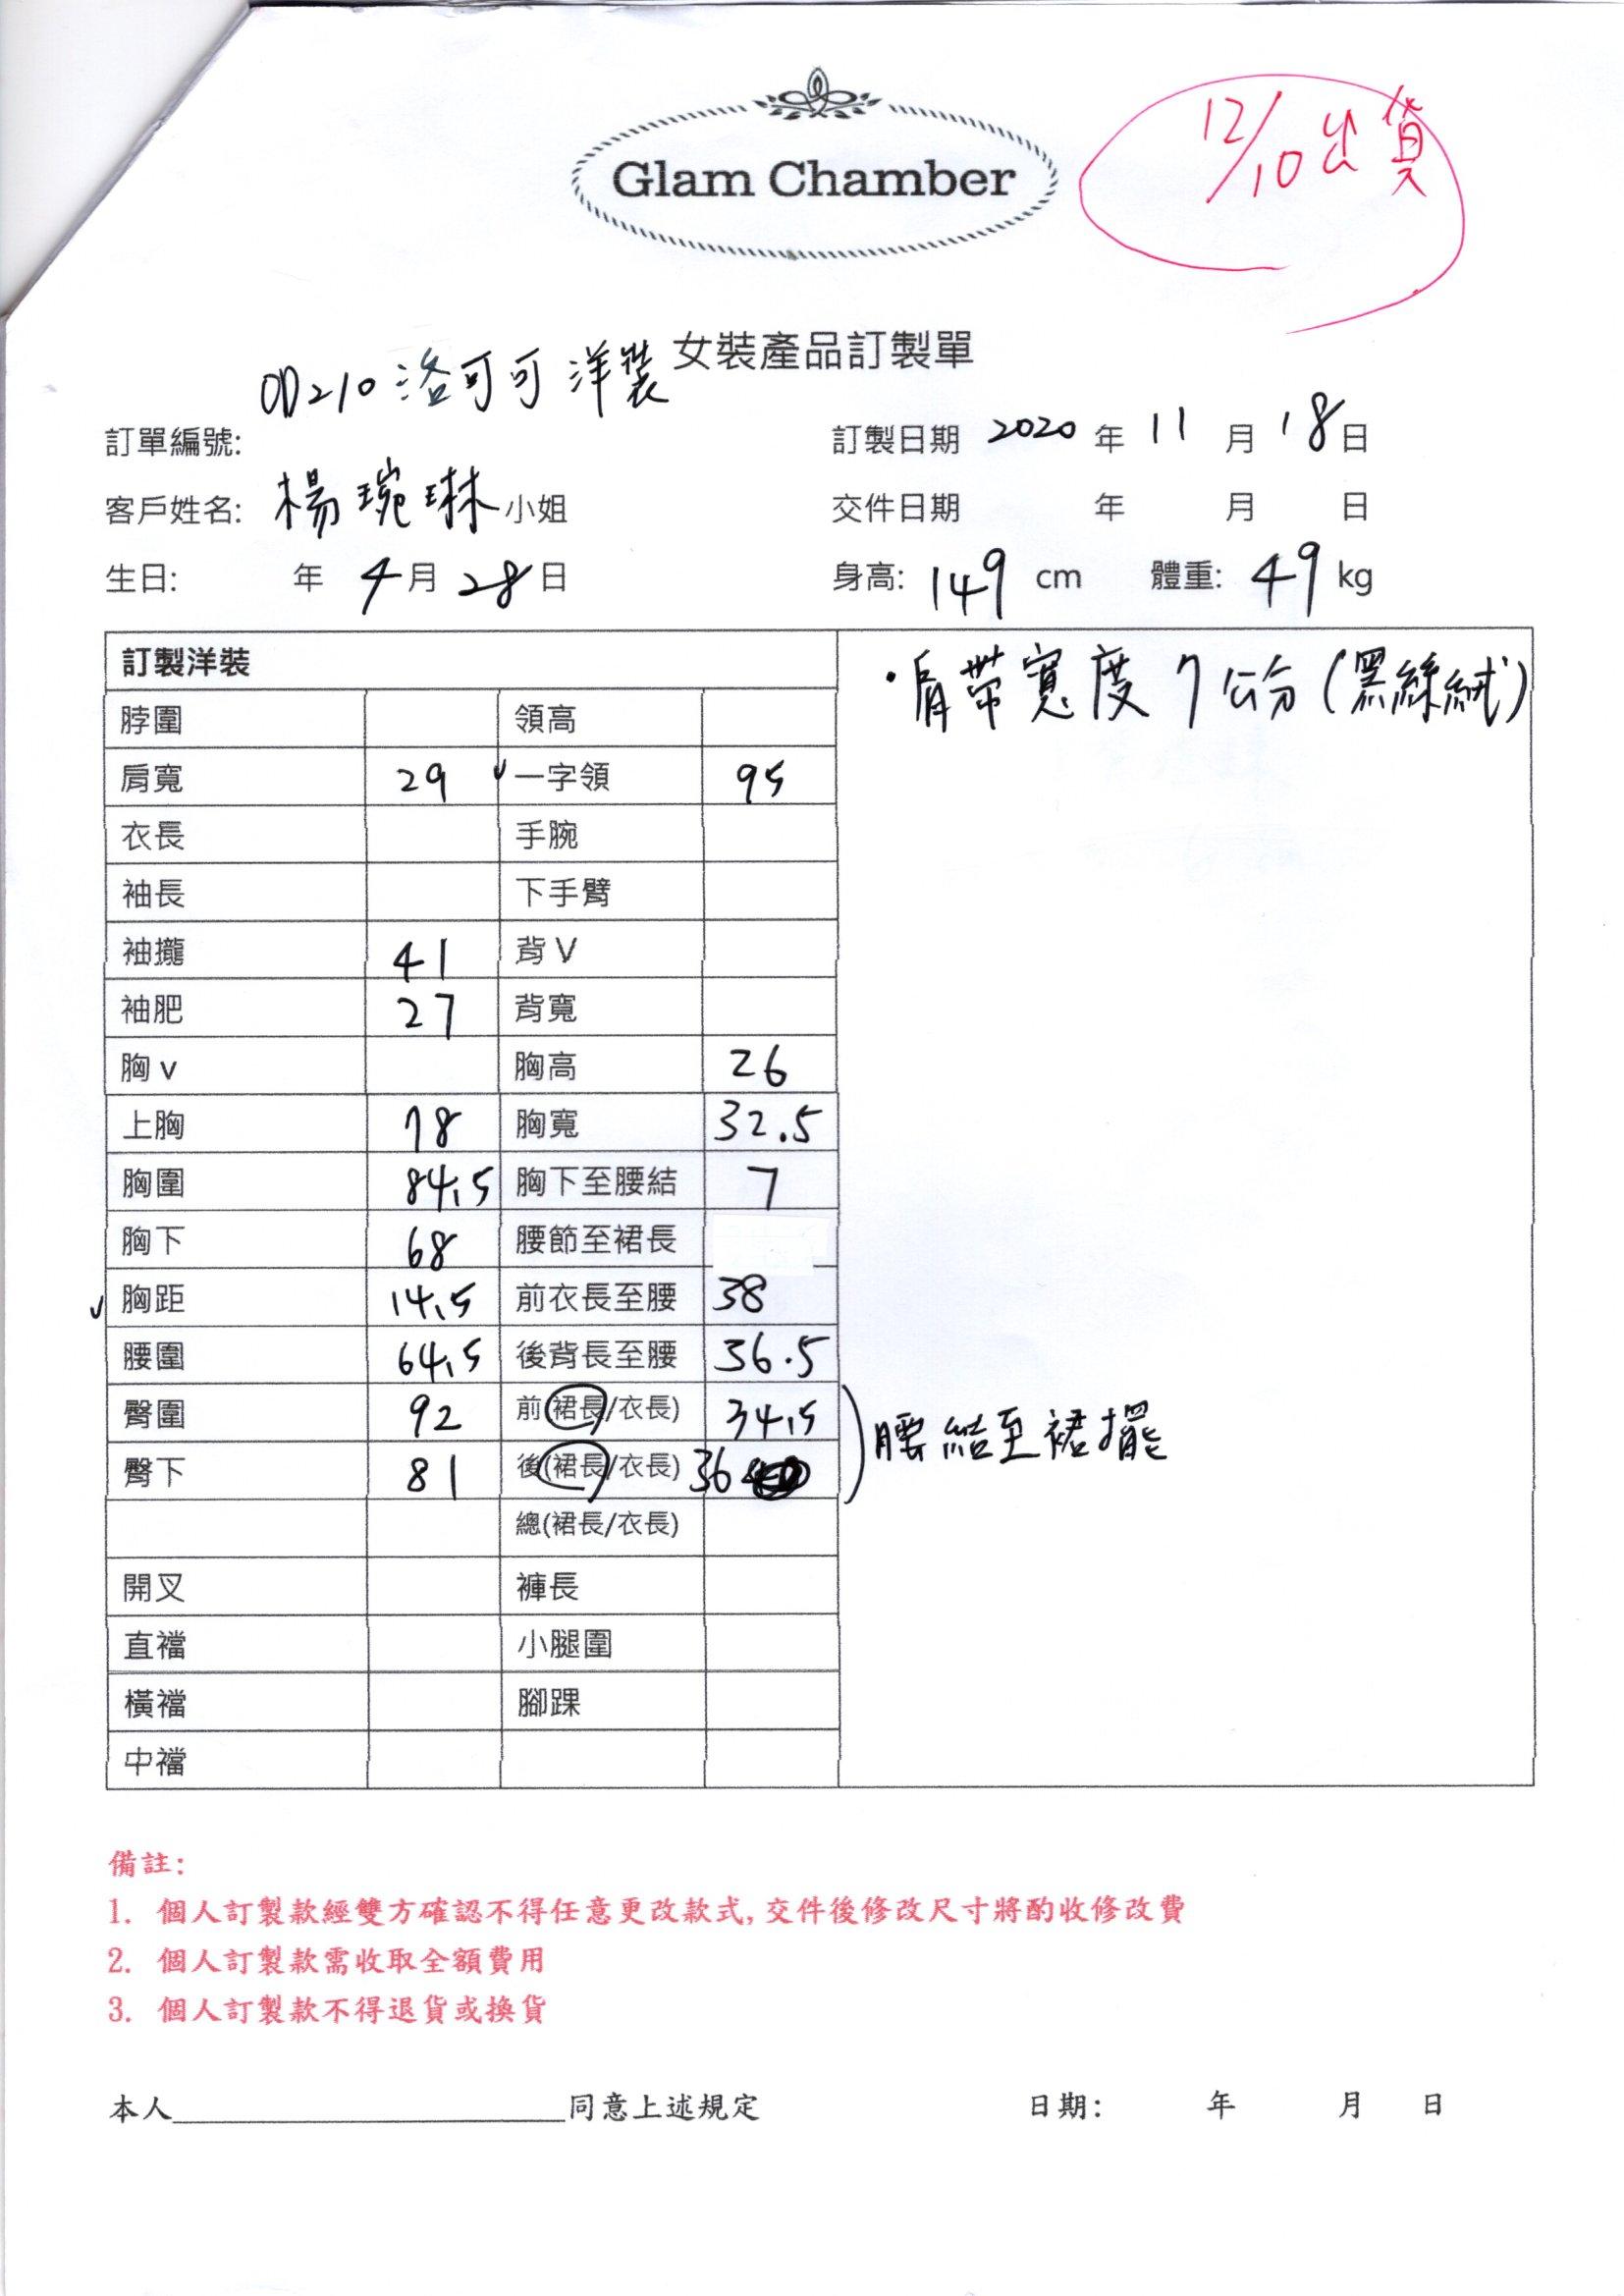 Glam Chamber
12/10出貨
女裝產品訂製單
OD210洛可可洋裝
訂單編號: 訂製日期 2020 年 11 月 18 日
客戶姓名: 楊琬琳 小姐 交件日期 年 月 日
生日: 年 4 月 28 日 身高: 149 cm 體重: 49 kg
訂製洋裝 ·肩帶寬度7公分(黑絲絨)
脖圍 領高
肩寬 29 v 一字領 95
衣長 手腕
袖長 下手臂
袖攏 41 背V
袖肥 27 背寬
胸v 胸高 26
上胸 78 胸寬 32.5
胸圍 84.5 胸下至腰結 7
胸下 68 腰節至裙長
v 胸距 14.5 前衣長至腰 38
腰圍 64.5 後背長至腰 36.5
臀圍 92 前(裙長/衣長) 34.5
腰結至裙擺
臀下 81 後(裙長/衣長) 36
總(裙長/衣長)
開叉 褲長
直襠 小腿圍
橫襠 腳踝
中襠
備註:
1. 個人訂製款經雙方確認不得任意更改款式,交件後修改尺寸將酌收修改費
2. 個人訂製款需收取全額費用
3. 個人訂製款不得退貨或換貨
本人____________________同意上述規定 日期: 年 月 日